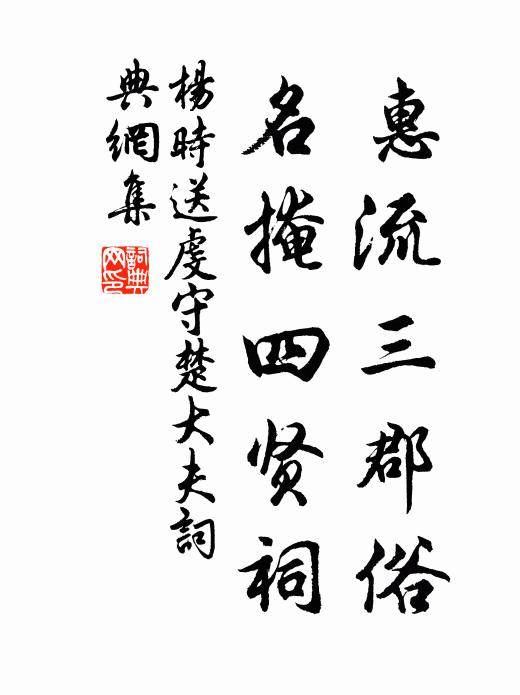 惠流三郡俗
名掩四贤祠
楊時送虔守楚大夫詞
典網集
詞典网印